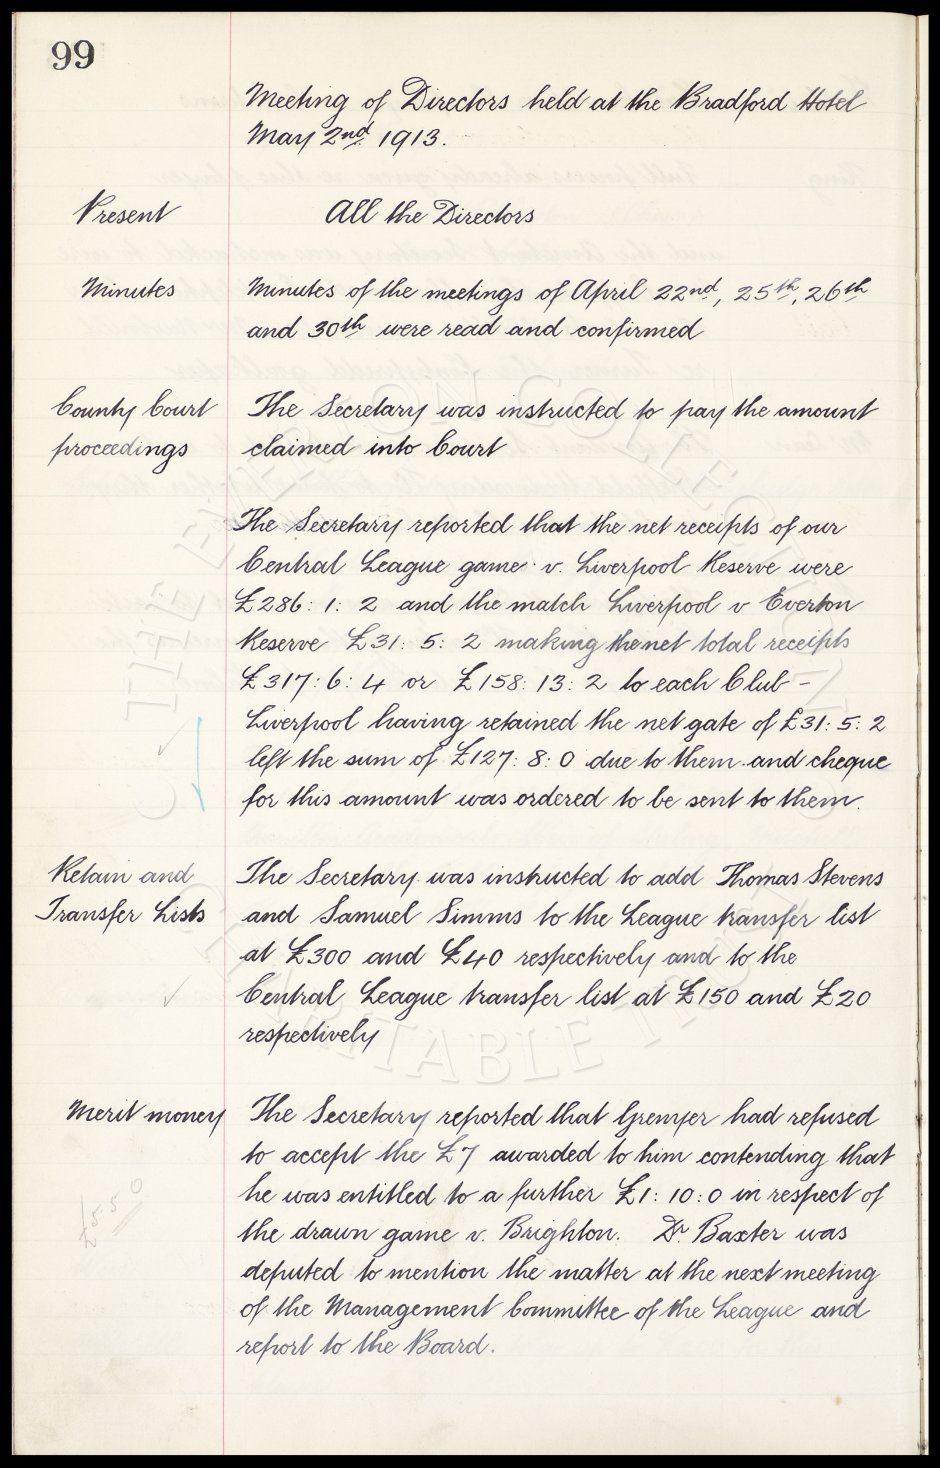 99
Meeting of Directors held at the Bradford Hotel
May 2nd 1913.
Present
All the Directors
Minutes
Minutes of the meetings of April 22nd, 25th, 26th
and 30th were read and confirmed
County Court
proceedings
The Secretary was instructed to pay the amount
claimed into Court
The Secretary reported that the net receipts of our
Central League game v. Liverpool Reserve were
£286: 1: 2 and the match Liverpool v Everton
Reserve £31: 5: 2 making the net total receipts
£317: 6: 4 or £158: 13: 2 to each Club -
Liverpool having retained the net gate of £31: 5: 2
left the sum of £127: 8: 0 due to them and cheque
for this amount was ordered to be sent to them.
Retain and
Transfer Lists
The Secretary was instructed to add Thomas Stevens
and Samuel Simms to the League transfer list
at £300 and £40 respectively and to the
Central League transfer list at £150 and £20
respectively
Merit money
The Secretary reported that Grenyer had refused
to accept the £7 awarded to him contending that
he was entitled to a further £1: 10: 0 in respect of
the drawn game v. Brighton. Dr. Baxter was
deputed to mention the matter at the next meeting
of the Management Committee of the League and
report to the Board.
CHARITABLE TRUST